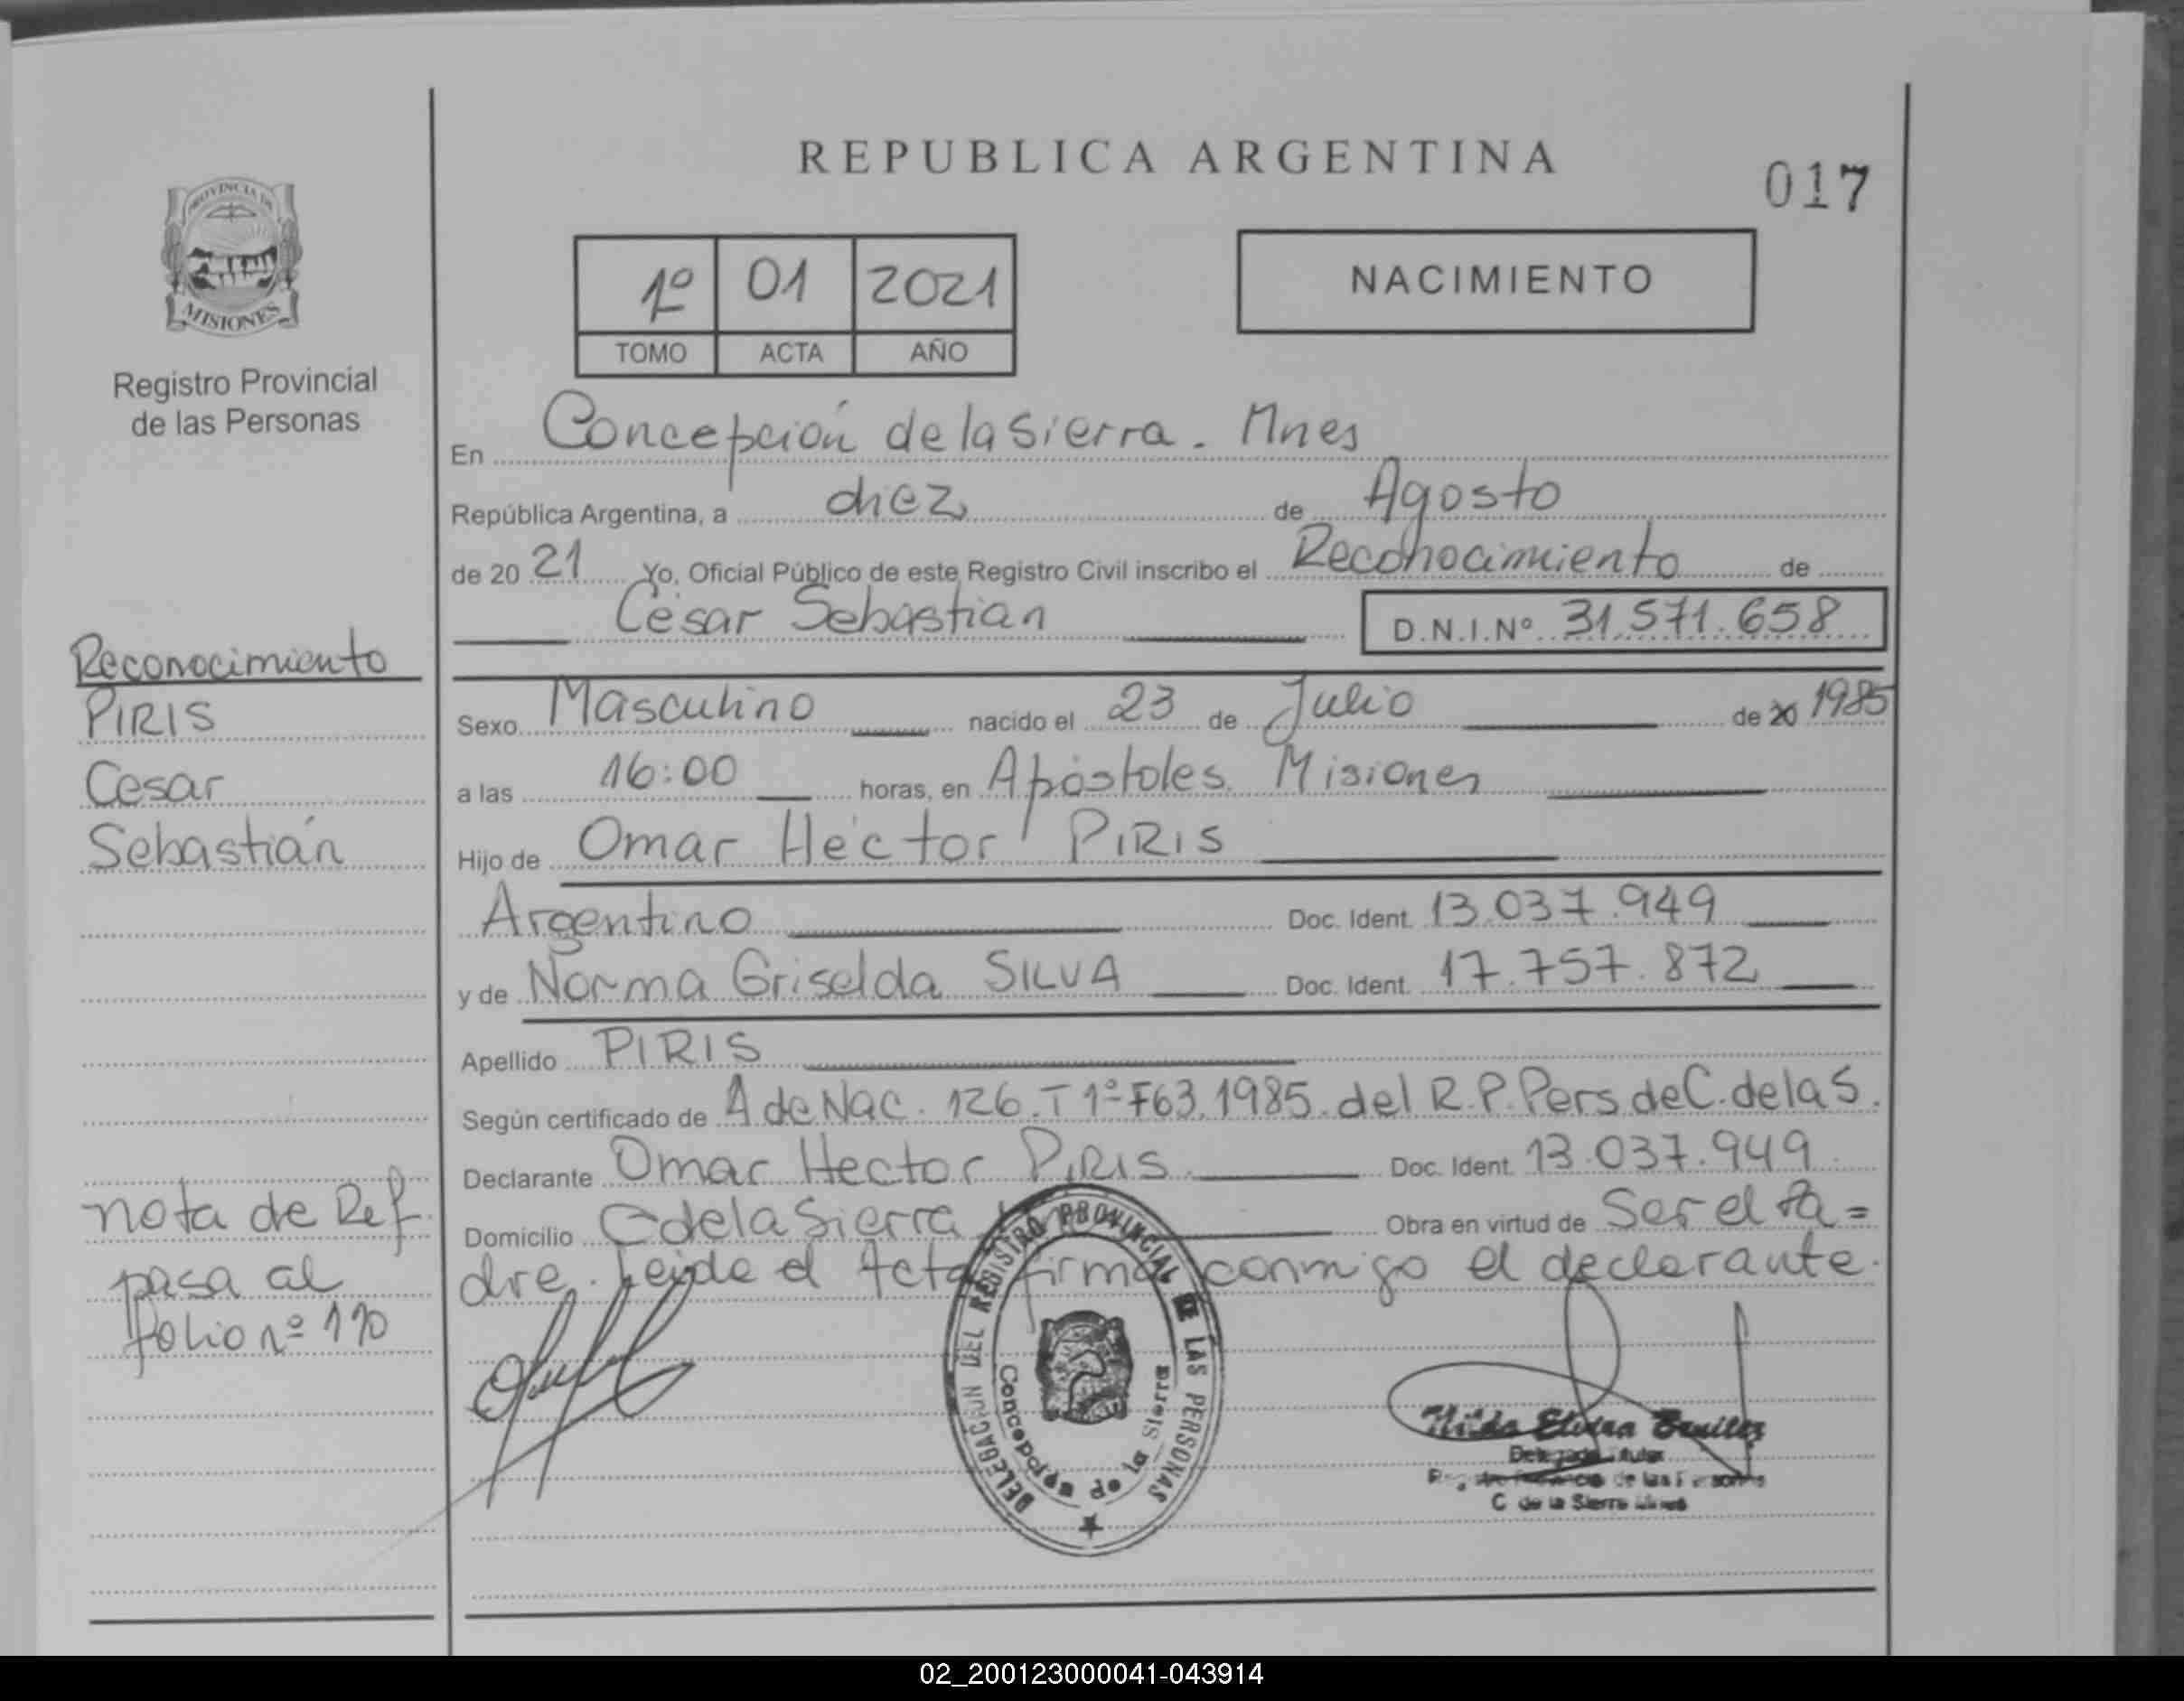 REPUBLICA ARGENTINA
017
PROVINCIA DE
MISIONES
Registro Provincial
de las Personas
1º 01 2021
TOMO ACTA AÑO
NACIMIENTO
En Concepción de la Sierra. Mnes
República Argentina, a diez de Agosto
de 20 21 Yo, Oficial Público de este Registro Civil inscribo el Reconocimiento de
César Sebastian D.N.I.Nº 31.571.658
Reconocimiento
PIRIS
Cesar
Sebastián
Sexo Masculino nacido el 23 de Julio de 20 1985
a las 16:00 horas, en Apóstoles. Misiones
Hijo de Omar Héctor PIRIS
Argentino Doc. Ident. 13.037.949
y de Norma Griselda SILVA Doc. Ident. 17.757.872
Apellido PIRIS
Según certificado de A de Nac. 126. T 1º F63. 1985. del R.P. Pers de C. de la S.
Declarante Omar Hector PIRIS. Doc. Ident. 13.037.949
Domicilio C de la Sierra Obra en virtud de Ser el Pa=
dre. Leida el Acta firma conmigo el declarante.
nota de Ref.
pasa al
folio nº 190
DELEGACIÓN DEL REGISTRO PROVINCIAL DE LAS PERSONAS
Concepción de la Sierra
Hilda Elvira Benitez
Delegada Titular
Registro Provincial de las Personas
C de la Sierra Mnes
02_200123000041-043914